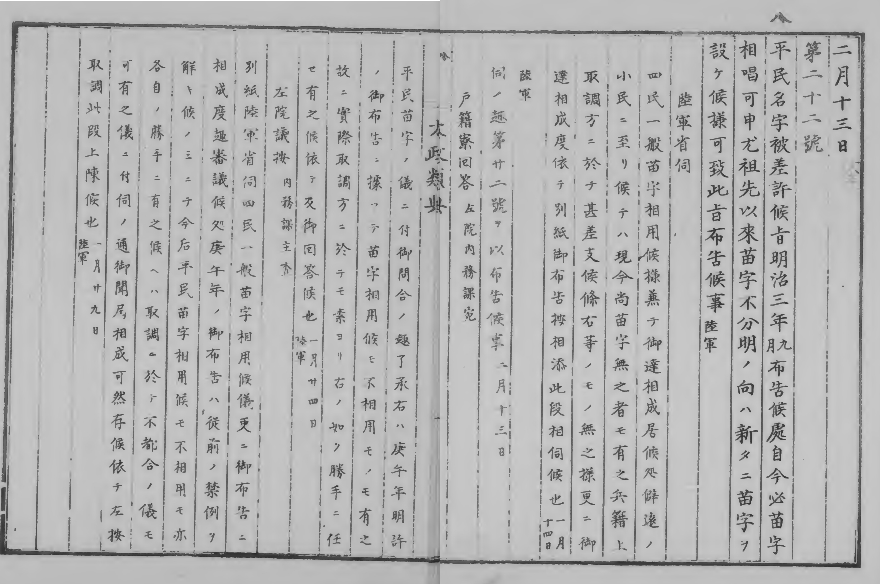 二月十三日
第二十二號
平民名字被差許候旨明治三年九月布告候處自今必苗字
相唱可申尤祖先以來苗字不分明ノ向ハ新タニ苗字ヲ
設ケ候様可致此旨布告候事 陸軍
陸軍省伺
四民一般苗字相用候様兼テ御達相成居候処僻遠ノ
小民ニ至リ候テハ現今尚苗字無之者モ有之兵籍上
取調方ニ於テ甚差支候條右等ノモノ無之様更ニ御
達相成度依テ別紙御布告按相添此段相伺候也 一月十四日
陸軍
伺ノ趣第廿二號ヲ以布告候事 二月十三日
戸籍寮回答 左院内務課宛
太政類典
平民苗字ノ儀ニ付御問合ノ趣了承右ハ庚午年明許
ノ御布告ニ據ハテ苗字相用候モ不相用モノモ有之
故ニ實際取調方ニ於テモ素ヨリ右ノ如ク勝手ニ任
セ有之候依テ及御回答候也 一月廿四日 陸軍
左院議按 内務課主査
別紙陸軍省伺四民一般苗字相用候儀更ニ御布告ニ
相成度趣審議候処庚午年ノ御布告ハ従前ノ禁例ヲ
解キ候ノミニテ今后平民苗字相用候モ不相用モ亦
各自ノ勝手ニ有之候ヘハ取調ニ於テ不都合ノ儀モ
可有之儀ニ付伺ノ通御聞届相成可然存候依テ左按
取調此段上陳候也 一月廿九日 陸軍